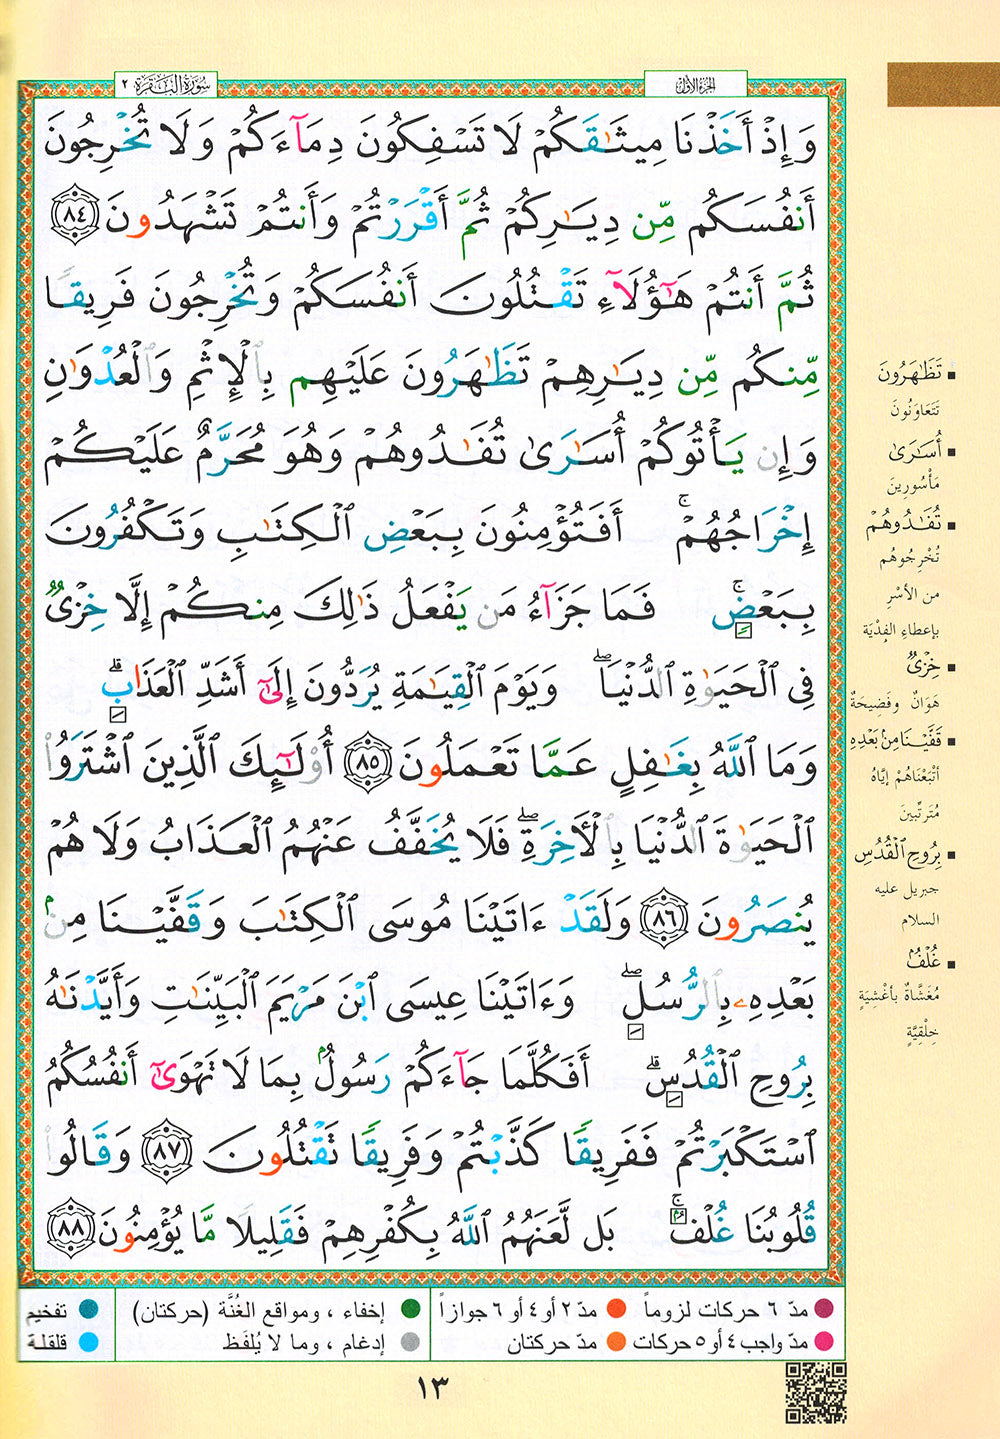 الجزء الأول
سورة البقرة ٢
وَإِذْ أَخَذْنَا مِيثَٰقَكُمْ لَا تَسْفِكُونَ دِمَآءَكُمْ وَلَا تُخْرِجُونَ
أَنفُسَكُم مِّن دِيَٰرِكُمْ ثُمَّ أَقْرَرْتُمْ وَأَنتُمْ تَشْهَدُونَ ٨٤
ثُمَّ أَنتُمْ هَٰٓؤُلَآءِ تَقْتُلُونَ أَنفُسَكُمْ وَتُخْرِجُونَ فَرِيقًا
مِّنكُم مِّن دِيَٰرِهِمْ تَظَٰهَرُونَ عَلَيْهِم بِٱلْإِثْمِ وَٱلْعُدْوَٰنِ
وَإِن يَأْتُوكُمْ أُسَٰرَىٰ تُفَٰدُوهُمْ وَهُوَ مُحَرَّمٌ عَلَيْكُمْ
إِخْرَاجُهُمْ ۚ أَفَتُؤْمِنُونَ بِبَعْضِ ٱلْكِتَٰبِ وَتَكْفُرُونَ
بِبَعْضٍ ۚ فَمَا جَزَآءُ مَن يَفْعَلُ ذَٰلِكَ مِنكُمْ إِلَّا خِزْىٌ
فِى ٱلْحَيَوٰةِ ٱلدُّنْيَا ۖ وَيَوْمَ ٱلْقِيَٰمَةِ يُرَدُّونَ إِلَىٰٓ أَشَدِّ ٱلْعَذَابِ ۗ
وَمَا ٱللَّهُ بِغَٰفِلٍ عَمَّا تَعْمَلُونَ ٨٥ أُو۟لَٰٓئِكَ ٱلَّذِينَ ٱشْتَرَوُا۟
ٱلْحَيَوٰةَ ٱلدُّنْيَا بِٱلْـَٔاخِرَةِ ۖ فَلَا يُخَفَّفُ عَنْهُمُ ٱلْعَذَابُ وَلَا هُمْ
يُنصَرُونَ ٨٦ وَلَقَدْ ءَاتَيْنَا مُوسَى ٱلْكِتَٰبَ وَقَفَّيْنَا مِنۢ
بَعْدِهِۦ بِٱلرُّسُلِ ۖ وَءَاتَيْنَا عِيسَى ٱبْنَ مَرْيَمَ ٱلْبَيِّنَٰتِ وَأَيَّدْنَٰهُ
بِرُوحِ ٱلْقُدُسِ ۗ أَفَكُلَّمَا جَآءَكُمْ رَسُولٌۢ بِمَا لَا تَهْوَىٰٓ أَنفُسُكُمُ
ٱسْتَكْبَرْتُمْ فَفَرِيقًا كَذَّبْتُمْ وَفَرِيقًا تَقْتُلُونَ ٨٧ وَقَالُوا۟
قُلُوبُنَا غُلْفٌۢ ۚ بَل لَّعَنَهُمُ ٱللَّهُ بِكُفْرِهِمْ فَقَلِيلًا مَّا يُؤْمِنُونَ ٨٨
تَظَٰهَرُونَ
تَتَعَاوَنُونَ
أُسَٰرَىٰ
مَأْسُورِينَ
تُفَٰدُوهُمْ
تُخْرِجُوهُم
من الأسْرِ
بإعطاءِ الفِدْيَة
خِزْىٌ
هَوَانٌ وفَضِيحَةٌ
قَفَّيْنَا مِنۢ بَعْدِهِ
أَتْبَعْنَاهُمْ إيَّاهُ
مُتَرتِّبينَ
بِرُوحِ ٱلْقُدُسِ
جبريل عليه
السلام
غُلْفٌ
مُغَشَّاةٌ بأغشِيَةٍ
خِلْقِيَّةٍ
مدّ ٦ حركات لزوماً مدّ ٢ أو ٤ أو ٦ جوازاً إخفاء ، ومواقع الغُنَّة (حركتان) تفخيم
مدّ واجب ٤ أو ٥ حركات مدّ حركتان إدغام ، وما لا يُلفَظ قلقلة
١٣